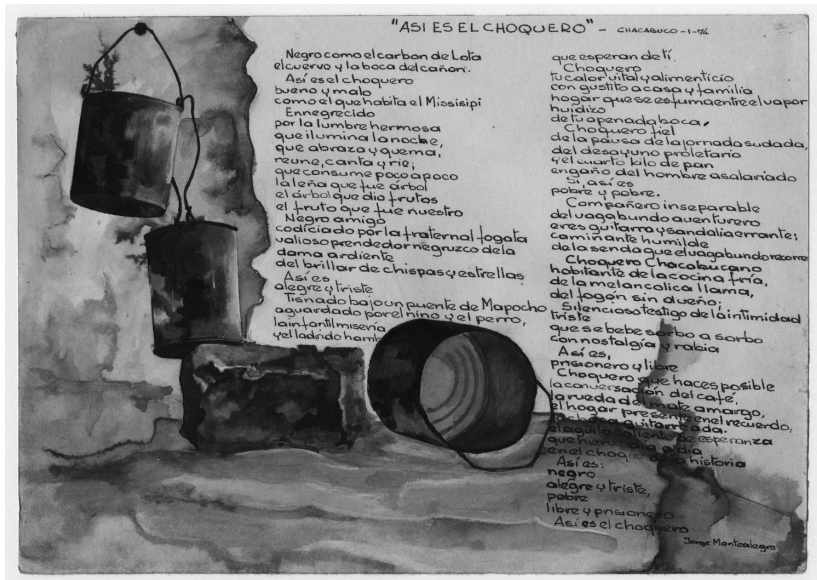 "ASI ES EL CHOQUERO" - CHACABUCO-1-74
Negro como el carbon de Lota
el cuervo y la boca del cañon.
Así es el choquero
bueno y malo
como el que habita el Missisipi
Ennegrecido
por la lumbre hermosa
que ilumina la noche,
que abraza y quema,
reune, canta y rie;
que consume poco a poco
la leña que fue árbol
el árbol que dio frutos
el fruto que fue nuestro
Negro amigo
codiciado por la fraternal fogata
valioso prendedor negruzco de la
dama ardiente
del brillar de chispas y estrellas
Así es
alegre y triste
Tisnado bajo un puente de Mapocho
aguardado por el niño y el perro,
la infantil miseria
y el ladrido hamb
que esperan de tí.
Choquero
tu calor vital y alimenticio
con gustito a casa y familia
hogar que se esfuma entre el vapor
huidizo
de tu apenada boca.
Choquero fiel
de la pausa de la jornada sudada,
del desayuno proletario
y el cuarto kilo de pan
engaño del hombre asalariado
Si, así es
pobre y pobre.
Compañero inseparable
del vagabundo aventurero
eres guitarra y sandalia errante;
caminante humilde
de la senda que el vagabundo recorre
Choquero Chacabucano
habitante de la cocina fría,
de la melancolica llama,
del fogón sin dueño;
Silencioso testigo de la intimidad
triste
que se bebe sorbo a sorbo
con nostalgia y rabia
Así es,
prisionero y libre
Choquero que haces posible
la conversación del café,
la rueda del mate amargo,
el hogar presente en el recuerdo,
guitarreada.
el agüita caliente de esperanza
que hierve día a día
en el choquero la historia
Así es:
negro
alegre y triste,
pobre
libre y prisionero
Así es el choquero
Jorge Montealegre